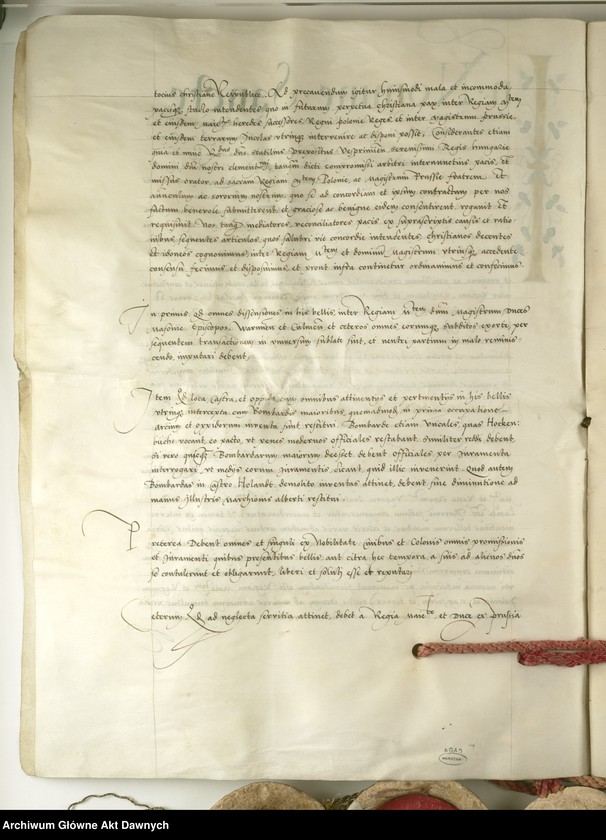 tocius christiane Reipublice. Ad precavendum igitur huiusmodi mala et incommoda,
pacisq; studio intendentes quo in futurum perpetua christiana pax inter Regiam Mtem
et eiusdem maietis heredes successores Regni polonie Reges et inter magistrum prussie,
et eiusdem terrarum Incolas utrinque intervenire ac disponi possit, Considerantes etiam
quia et mue Rdus dns stabilius prepositus Vesprimien serenissimi Regis hungarie
domini dni nostri clementmi, tanquam dicti compromissi arbitri internuncius pacis, et
missus orator, ad sacram Regiam Mtem Polonie, ac magistrum Prussie fratrem et
avunculum ac sororinum nostrum, quo se ad concordiam et ipsum contractum per nos
factum benevole submitterent et graciose ac benigne eidem consentirent, rogavit et
requisivit. Nos tanq; mediatores, reconciliatores pacis ex suprascriptis causis et ratio
nibus, sequentes articulos, quos salubri vie concordie intendentes, christianos decentes
et idoneos cognovimus, inter Regiam Mtem et dominum magistrum utriusq; accedente
consensu fecimus et disposuimus, et prout infra continetur ordinavimus et confecimus
In primis, Qd omnes dissensiones in his bellis, inter Regiam Mtem dnum magistrum, Duces
masovie Episcopos, Warmien et Culmen, et ceteros omnes eorumq; subditos exorte, per
sequentem transactionem in universum sublate sint, et neutri partium in malo reminis-
cendo, imputari debent,
Item Qd loca castra, et oppida cum omnibus attinentiis et pertinentiis in his bellis
utrinq; intercepta cum Bombardis maioribus, quemadmodum in prima occupatione
arcium et oppidorum inventa sunt restitui. Bombarde etiam Unicales, quas Hocken:
buchs vocant, eo pacto, ut penes modernos officiales restabant, similiter reddi debent,
Si vero quicq; Bombardarum maiorum deesset, debent officiales, per Juramenta
interrogari, ut mediis eorum Juramentis, dicant, quid illic invenerint. Quod autem
Bombardas in castro Holandt demolito inventas attinet, debent, sine diminutione ad
manus Illustris, marchionis alberti restitui.
Preterea Debent omnes et singuli ex Nobilitate Civibus et Colonis omnis promissionis
et Juramenti quibus presentibus bellis aut citra hec tempora, a suis ad alienos dnos
se contulerunt et obligarunt, liberi et soluti esse et reputari
Ceterum Qd ad neglecta servitia attinet, debet a Regia maiete et Duce ex Prussia
AGAD
WARSZAWA
Archiwum Główne Akt Dawnych